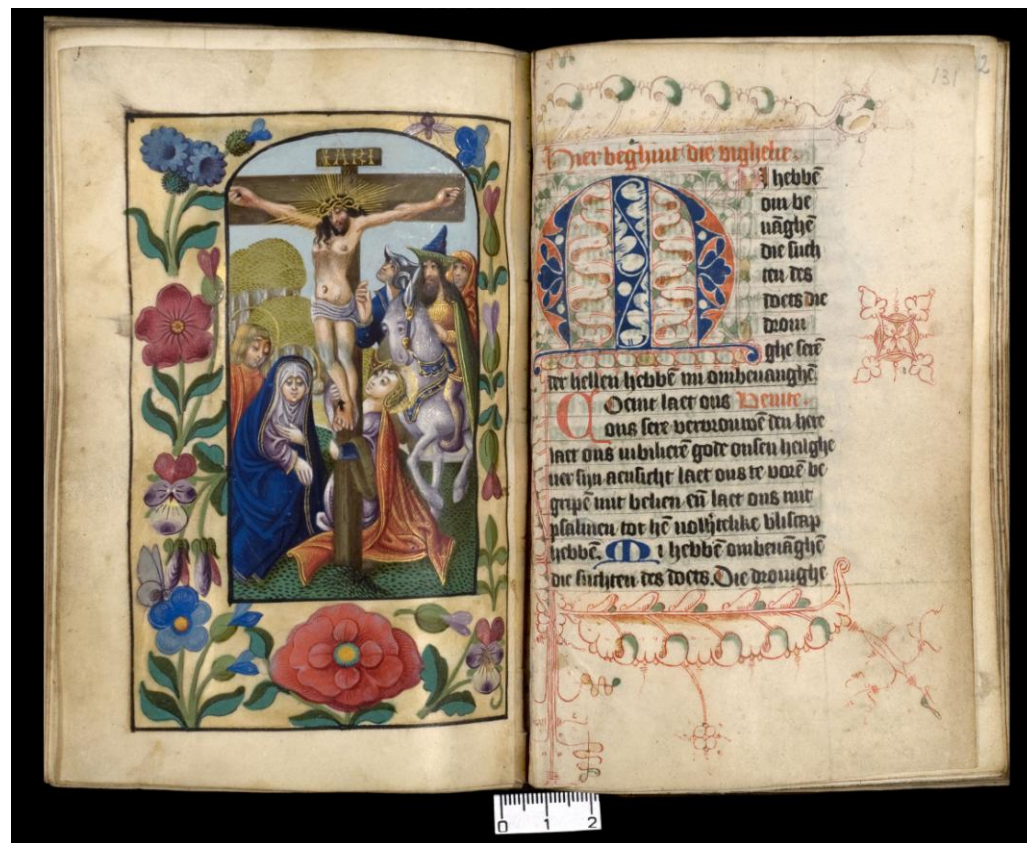 IARI
131
2
Hier beghint die vighelie.
MI hebbē
om be
uāghē
die such
ten des
doets die
droui
ghe serē
der hellen hebbē mi ombeuanghē
Coemt laet ons Venite.
ons sere vervrouwē den here
laet ons iubilierē gode onsen heilghe
uer sijn aensicht laet ons te vorē be
gripē mit belien eñ laet ons mit
psalmen tot hē bliscap
hebbē. Mi hebbē ombeuāghē
die suchten des doets. Die drouighe
0 1 2